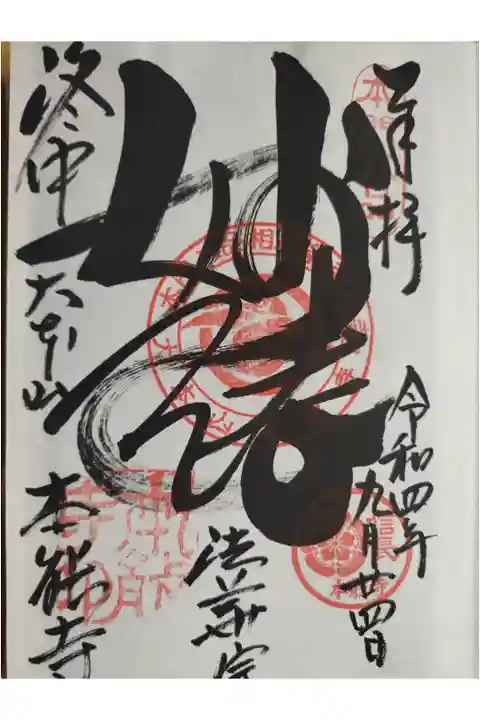 奉拝
令和四年
九月廿四日
妙法
法華宗
洛中 大本山 本能寺